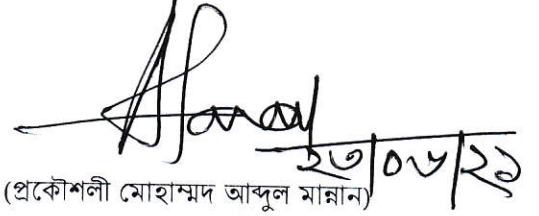 ২৩/০৮/২১
(প্রকৌশলী মোহাম্মদ আব্দুল মান্নান)